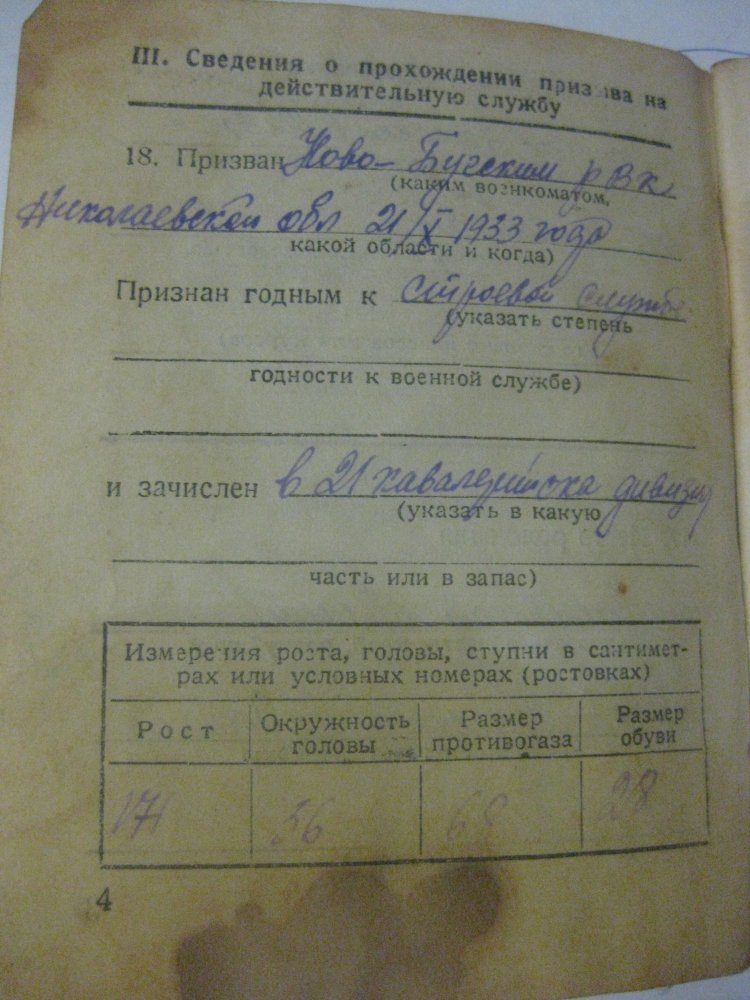 III. Сведения о прохождении призыва на
действительную службу
18. Призван Ново-Бугским РВК
(каким военкоматом,
Николаевской обл 21/X 1933 года
какой области и когда)
Признан годным к строевой службе
(указать степень
годности к военной службе)
и зачислен в 21 кавалерийска дивизия
(указать в какую
часть или в запас)
Измерения роста, головы, ступни в сантимет-
рах или условных номерах (ростовках)
Рост Окружность головы Размер противогаза Размер обуви
171 56 68 28
4